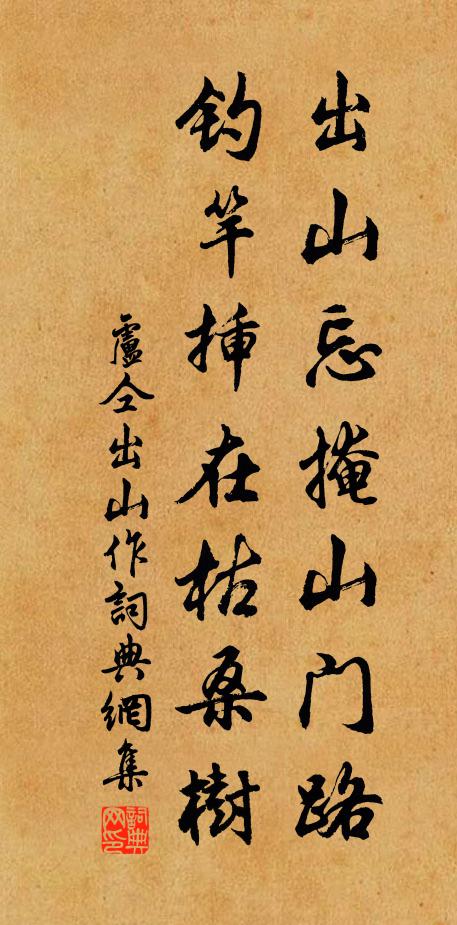 出山忘掩山门路
钓竿插在枯桑樹
盧仝出山作詞典網集
詞典网印